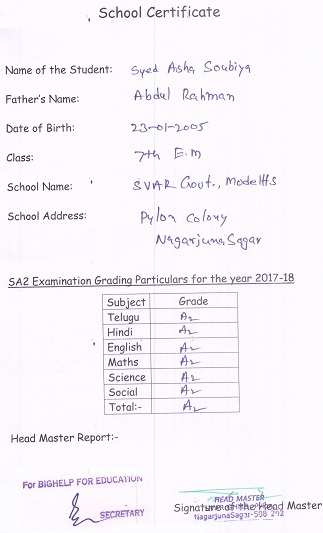 School Certificate
Name of the Student: Syed Asha Soubiya
Father's Name: Abdul Rahman
Date of Birth: 23-01-2005
Class: 7th E.M
School Name: SVAR Govt., Model H.S
School Address: Pylon Colony
Nagarjuna Sagar
SA2 Examination Grading Particulars for the year 2017-18
Subject Grade
Telugu A2
Hindi A2
English A2
Maths A2
Science A2
Social A2
Total:- A2
Head Master Report:-
For BIGHELP FOR EDUCATION
SECRETARY
HEAD MASTER
Signature of the Head Master
NagarjunaSagar-508 202